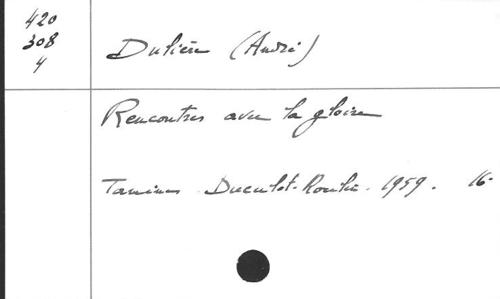 420
308
4
Dulière (André)
Rencontres avec la gloire
Tamines Duculot-Roulin. 1959. 16-